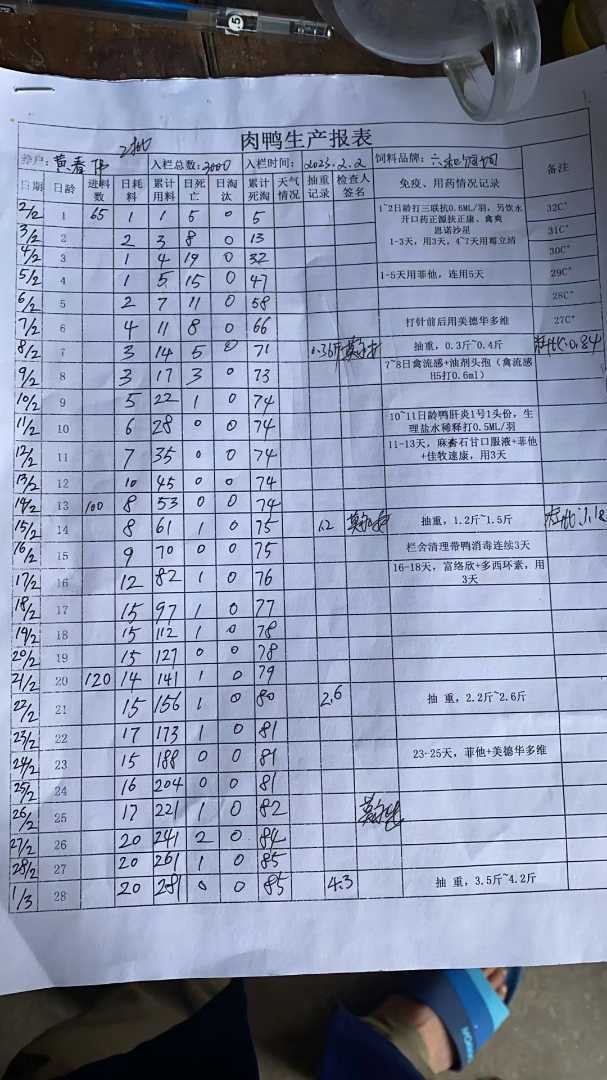 肉鸭生产报表
养户: 黄春伟 2批 入栏总数: 3000 入栏时间: 2023.2.2 饲料品牌: 六和饲料 备注
日期 日龄 进料数 日耗料 累计用料 日死亡 日淘汰 累计死淘 天气情况 抽重记录 检查人签名 免疫、用药情况记录
2/2 1 65 1 1 5 0 5 1~2日龄打三联抗0.6ML/羽, 另饮水 32C°
开口药正源扶正康、禽爽
恩诺沙星
3/2 2 2 3 8 0 13 1-3天, 用3天, 4~7天用霉立清 31C°
4/2 3 1 4 19 0 32 30C°
5/2 4 1 5 15 0 47 1-5天用菲他, 连用5天 29C°
6/2 5 2 7 11 0 58 28C°
7/2 6 4 11 8 0 66 打针前后用美德华多维 27C°
8/2 7 3 14 5 0 71 0.36斤 抽重, 0.3斤~0.4斤 料比:0.84
9/2 8 3 17 3 0 73 7~8日禽流感+油剂头孢(禽流感
H5打0.6ml)
10/2 9 5 22 1 0 74
11/2 10 6 28 0 0 74 10~11日龄鸭肝炎1号1头份, 生
理盐水稀释打0.5ML/羽
12/2 11 7 35 0 0 74 11-13天, 麻膏石甘口服液+菲他
+佳牧速康, 用3天
13/2 12 10 45 0 0 74
14/2 13 100 8 53 0 0 74
15/2 14 8 61 1 0 75 1.2 抽重, 1.2斤~1.5斤 料比:1.18
16/2 15 9 70 0 0 75 栏舍清理带鸭消毒连续3天
17/2 16 12 82 1 0 76 16-18天, 富络欣+多西环素, 用
3天
18/2 17 15 97 1 0 77
19/2 18 15 112 1 0 78
20/2 19 15 127 0 0 78
21/2 20 120 14 141 1 0 79
22/2 21 15 156 1 0 80 2.6 抽 重, 2.2斤~2.6斤
23/2 22 17 173 1 0 81
24/2 23 15 188 0 0 81 23-25天, 菲他+美德华多维
25/2 24 16 204 0 0 81
26/2 25 17 221 1 0 82
27/2 26 20 241 2 0 84
28/2 27 20 261 1 0 85
1/3 28 20 281 0 0 85 4.3 抽 重, 3.5斤~4.2斤